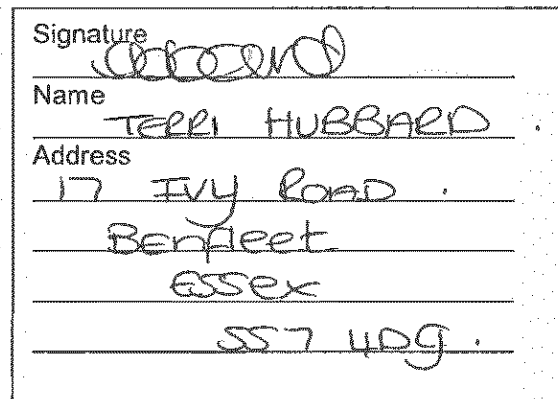 Signature
Name
TERRI HUBBARD .
Address
17 IVY ROAD .
Benfleet
Essex
SS7 4DG .